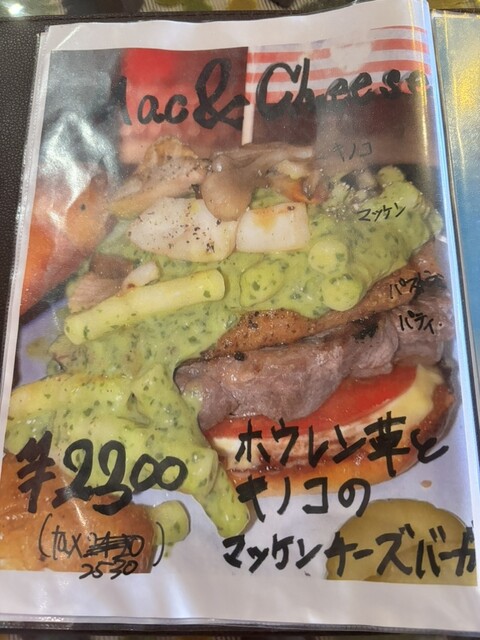 Mac & Cheese
キノコ
マッケン
パティ
¥2300
(tax 2530)
ホウレン草と
キノコの
マッケンチーズバーガ